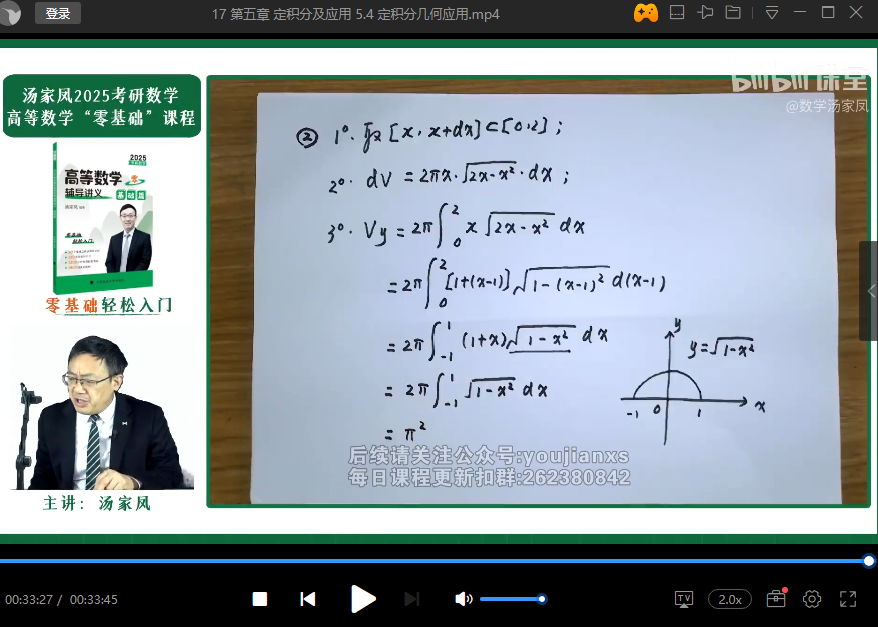 登录
17 第五章 定积分及应用 5.4 定积分几何应用.mp4
汤家凤2025考研数学
高等数学“零基础”课程
2025
高等数学
辅导讲义
基础篇
零基础
轻松入门
零基础轻松入门
主讲：汤家凤
bilibili 课堂
@数学汤家凤
② 1°. 取[x, x+dx]⊂[0,2];
2°. dV = 2πx·√(2x-x²)·dx;
3°. Vy = 2π∫₀² x√(2x-x²) dx
= 2π∫₀² [1+(x-1)]√(1-(x-1)²) d(x-1)
= 2π∫₋₁¹ (1+x)√(1-x²) dx
= 2π∫₋₁¹ √(1-x²) dx
= π²
y
y=√(1-x²)
-1 0 1 x
后续请关注公众号:youjianxs
每日课程更新扣群:262380842
00:33:27 / 00:33:45
TV
2.0x